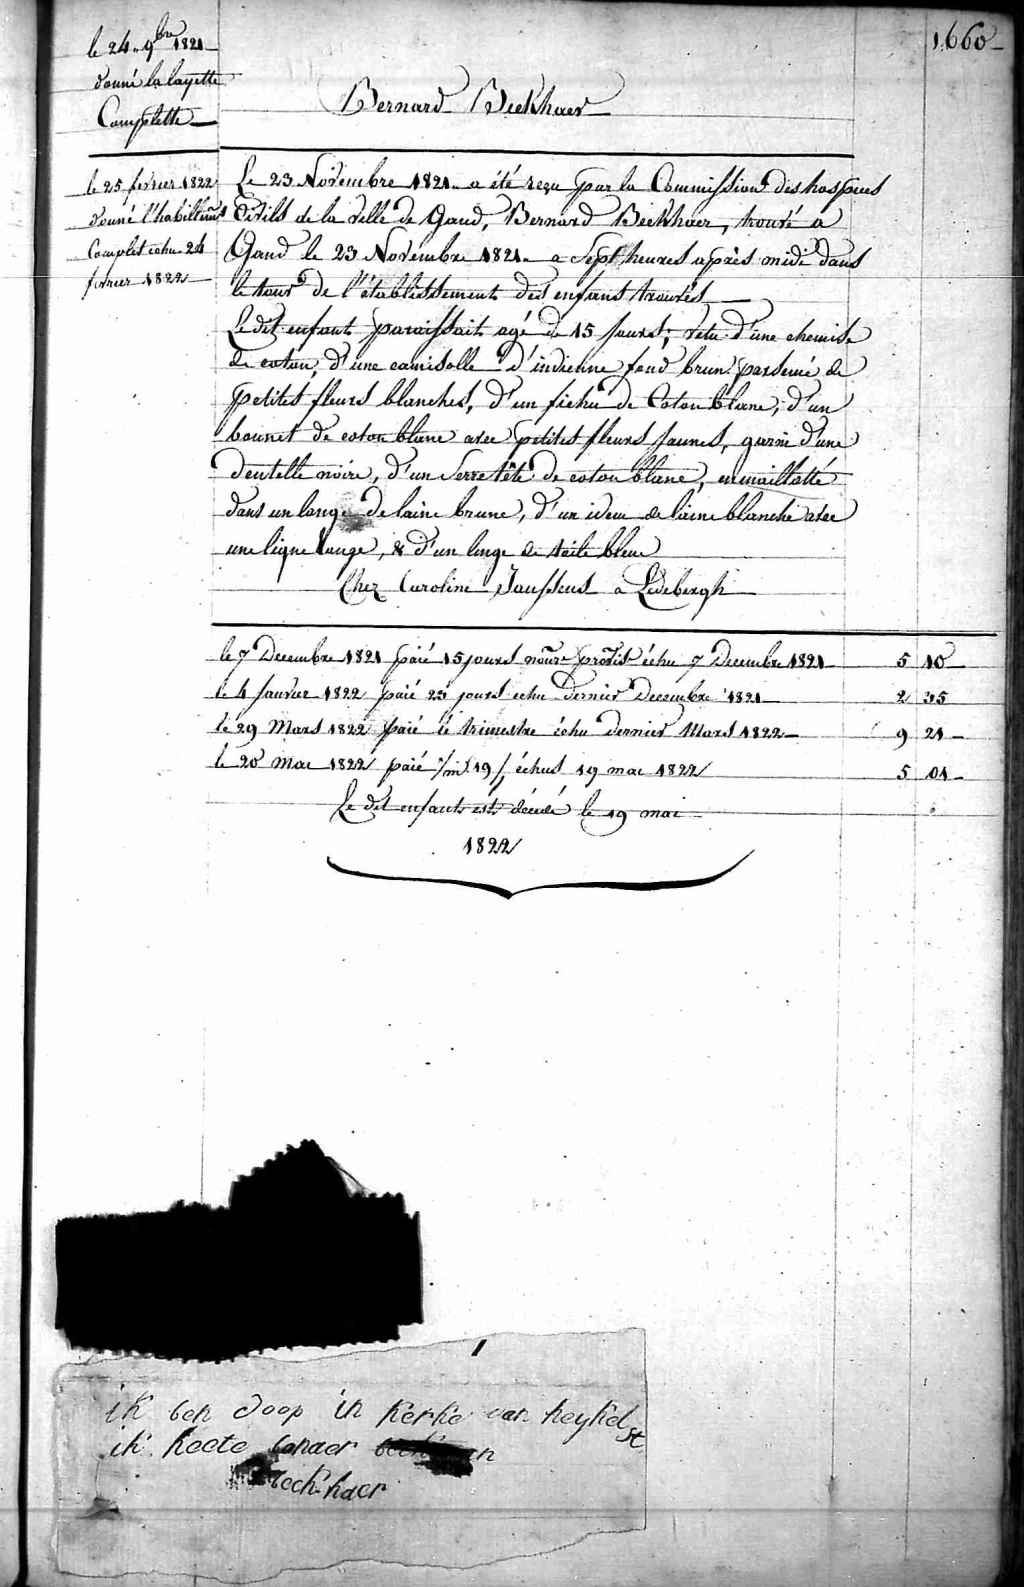 1660
le 24 9bre 1821
donné la layette
Complette
Bernard Beekhaer
le 25 fevrier 1822
donné l'habillemt
Complet echu 24
fevrier 1822
Le 23 Novembre 1821 a été reçu par la Commission des hospices
Civils de la ville de Gand, Bernard Beekhaer, trouvé a
Gand le 23 Novembre 1821 a Sept heures après midi dans
le tour de l'établissement des enfans trouvés
Le dit enfant paraissait agé de 15 Jours, vetu d'une chemise
de coton, d'une camisolle d'indienne fond brun parsemé de
petites fleurs blanches, d'un fichu de Coton blanc, d'un
bonnet de coton blanc avec petites fleurs Jaunes, garni d'une
dentelle noire, d'un Serre tête de coton blanc, emmaillotté
dans un lange de laine brune, d'un idem de laine blanche avec
une ligne rouge, & d'un linge de toile bleue
Chez Caroline Janssens a Ledebergh
le 7 Decembre 1821 païé 15 jours nourre provis échu 7 Decembre 1821 5 10
le 4 Janvier 1822 païé 23 jours echu dernier Decembre 1821 2 35
le 29 Mars 1822 païé le trimestre échu dernier Mars 1822 9 21
le 20 Mai 1822 païé 1/m 19/j échus 19 mai 1822 5 01
Le dit enfant est décédé le 19 mai
1822
ik ben doop in kerke van heykel
st
ik heete bernaer
beek haer